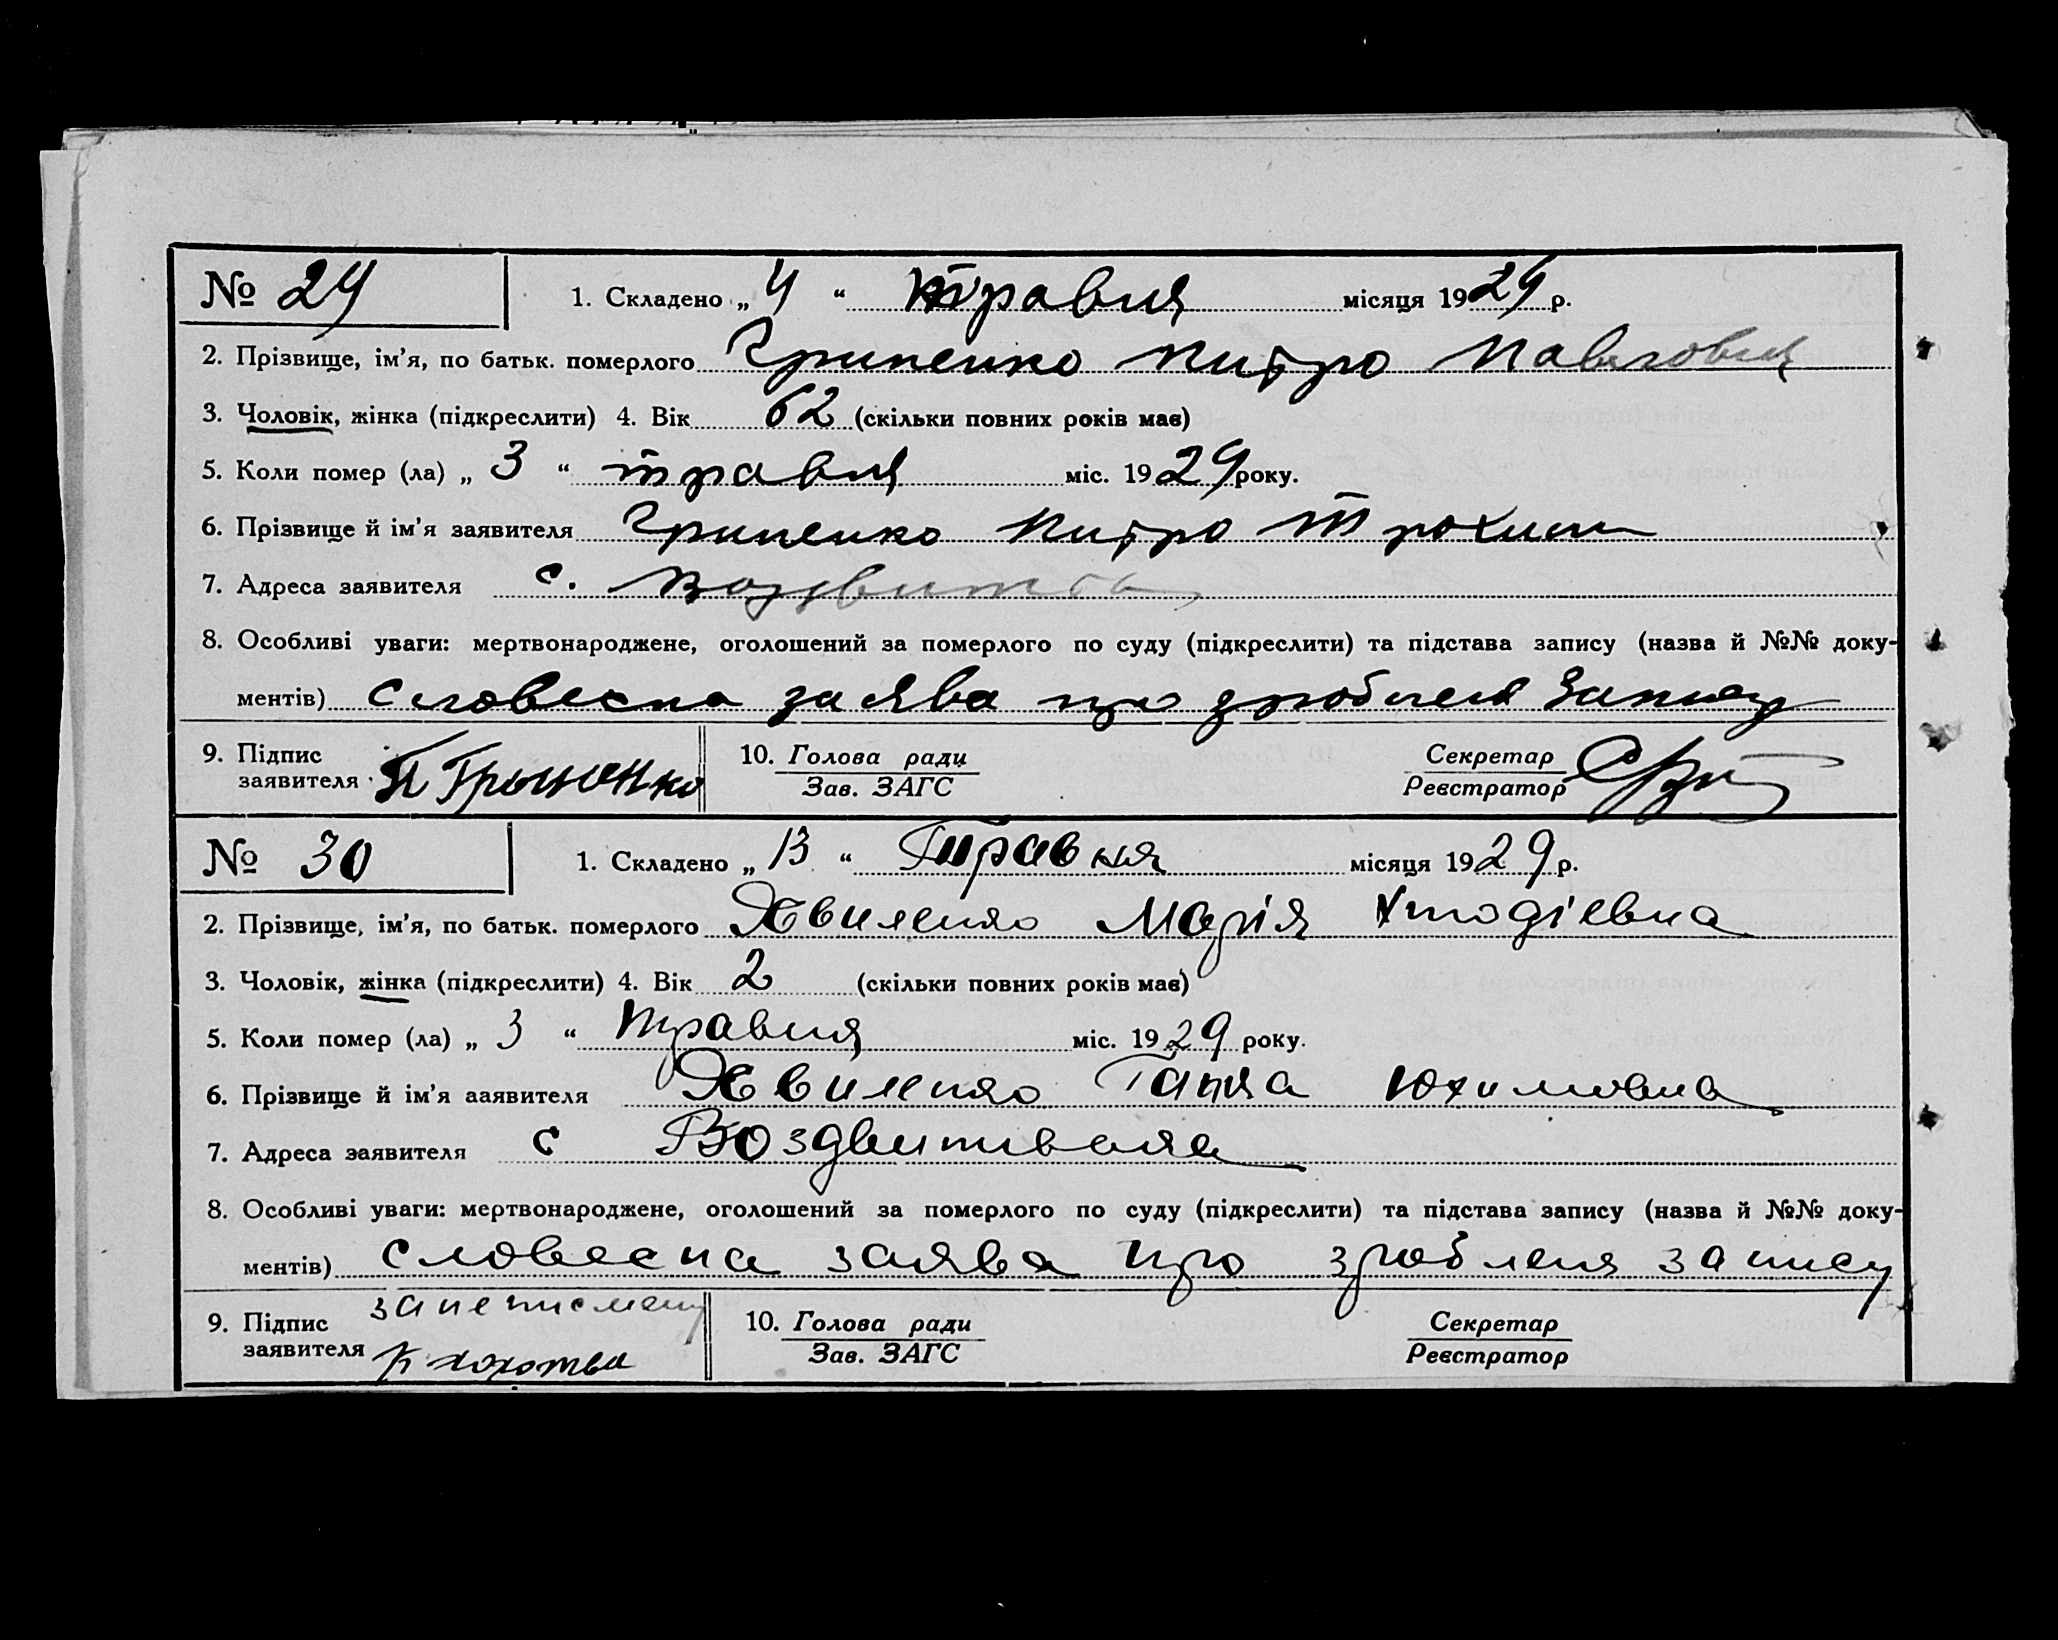 № 29 1. Складено „ 4 “ травня місяця 1929 р.
2. Прізвище, ім’я, по батьк. померлого Гриненко Митро Павлович
3. Чоловік, жінка (підкреслити) 4. Вік 62 (скільки повних років має)
5. Коли помер (ла) „ 3 “ травня міс. 1929 року.
6. Прізвище й ім’я заявителя Гриненко Митро
7. Адреса заявителя с.
8. Особливі уваги: мертвонароджене, оголошений за померлого по суду (підкреслити) та підстава запису (назва й №№ доку-
ментів) словесна заява про зроблення запису
9. Підпис 10. Голова ради Секретар
заявителя Зав. ЗАГС Реєстратор
№ 30 1. Складено „ 13 “ Травня місяця 1929 р.
2. Прізвище, ім’я, по батьк. померлого Марія
3. Чоловік, жінка (підкреслити) 4. Вік 2 (скільки повних років має)
5. Коли помер (ла) „ 3 “ травня міс. 1929 року.
6. Прізвище й ім’я ааявителя Ганна Юхимовна
7. Адреса заявителя с
8. Особливі уваги: мертвонароджене, оголошений за померлого по суду (підкреслити) та підстава запису (назва й №№ доку-
ментів) словесна заява про зробленя запису
9. Підпис за неписмену 10. Голова ради Секретар
заявителя Зав. ЗАГС Реєстратор